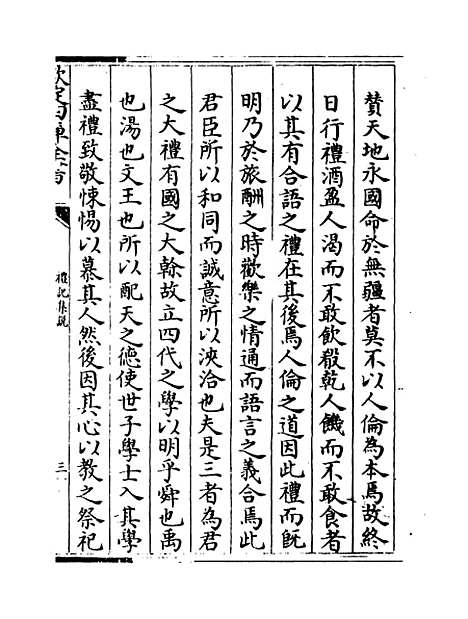 賛天地永國命於無疆者莫不以人倫為本焉故終
日行禮酒盈人渇而不敢飲殽乾人饑而不敢食者
以其有合語之禮在其後焉人倫之道因此禮而旣
明乃於旅酬之時歡樂之情通而語言之義合焉此
君臣所以和同而誠意所以浹洽也夫是三者為君
之大禮有國之大榦故立四代之學以明乎舜也禹
也湯也文王也所以配天之德使世子學士入其學
盡禮致敬悚惕以慕其人然後因其心以教之祭祀
欽定四庫全書
禮記集説
三